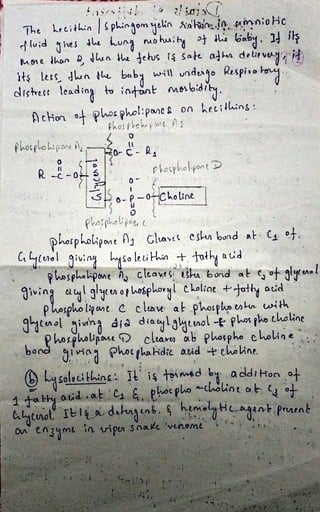 The Lecithin / Sphingomyelin ratio in amniotic
fluid gives the lung maturity of the baby. If its
more than 2, then the fetus is safe after delivery, if
its less, then the baby will undergo Respiratory
distress leading to infant morbidity.
Action of phospholipanes on Lecithins:
phospholipane A2
phospholipane A1
O
O-C-R1
O
R-C-O
Glycerol
phospholipane D
O-
O-P-O
Choline
O
phospholipane C
phospholipane A1 Cleaves ester bond at C1 of
Glycerol giving Lysolecithin + fatty acid
phospholipane A2 cleaves ester bond at C2 of glycerol
giving acyl glycerophosphoryl choline + fatty acid
Phospholipane C cleave at phospho ester with
glycerol giving diacylglycerol & phospho choline
Phospholipane D cleaves at phospho choline
bond giving phosphatidic acid + choline.
(b) Lysolecithins: It is formed by addition of
1 fatty acid at C1 & phospho-choline at C3 of
Glycerol. It is a detergent, & hemolytic agent present
as enzyme in viper snake venome